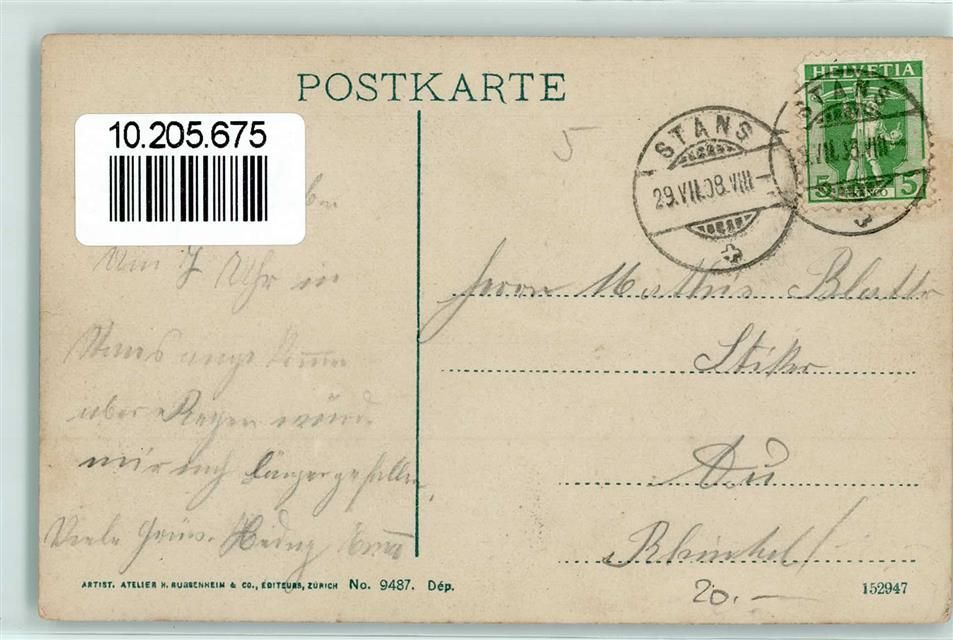 POSTKARTE
10.205.675
HELVETIA
5 5
FRANCO
STANS
29.VII.08.VIII
STANS
5
Um 7 Uhr in
Stans ange
aber Regen würd
mir noch länger gefallen
Viele Grüss. Hedwig
Herrn Mathis Blatter
Stiker
Au
Rheinthal
20.–
ARTIST. ATELIER H. GUGGENHEIM & CO., EDITEURS, ZÜRICH No. 9487. Dép.
152947